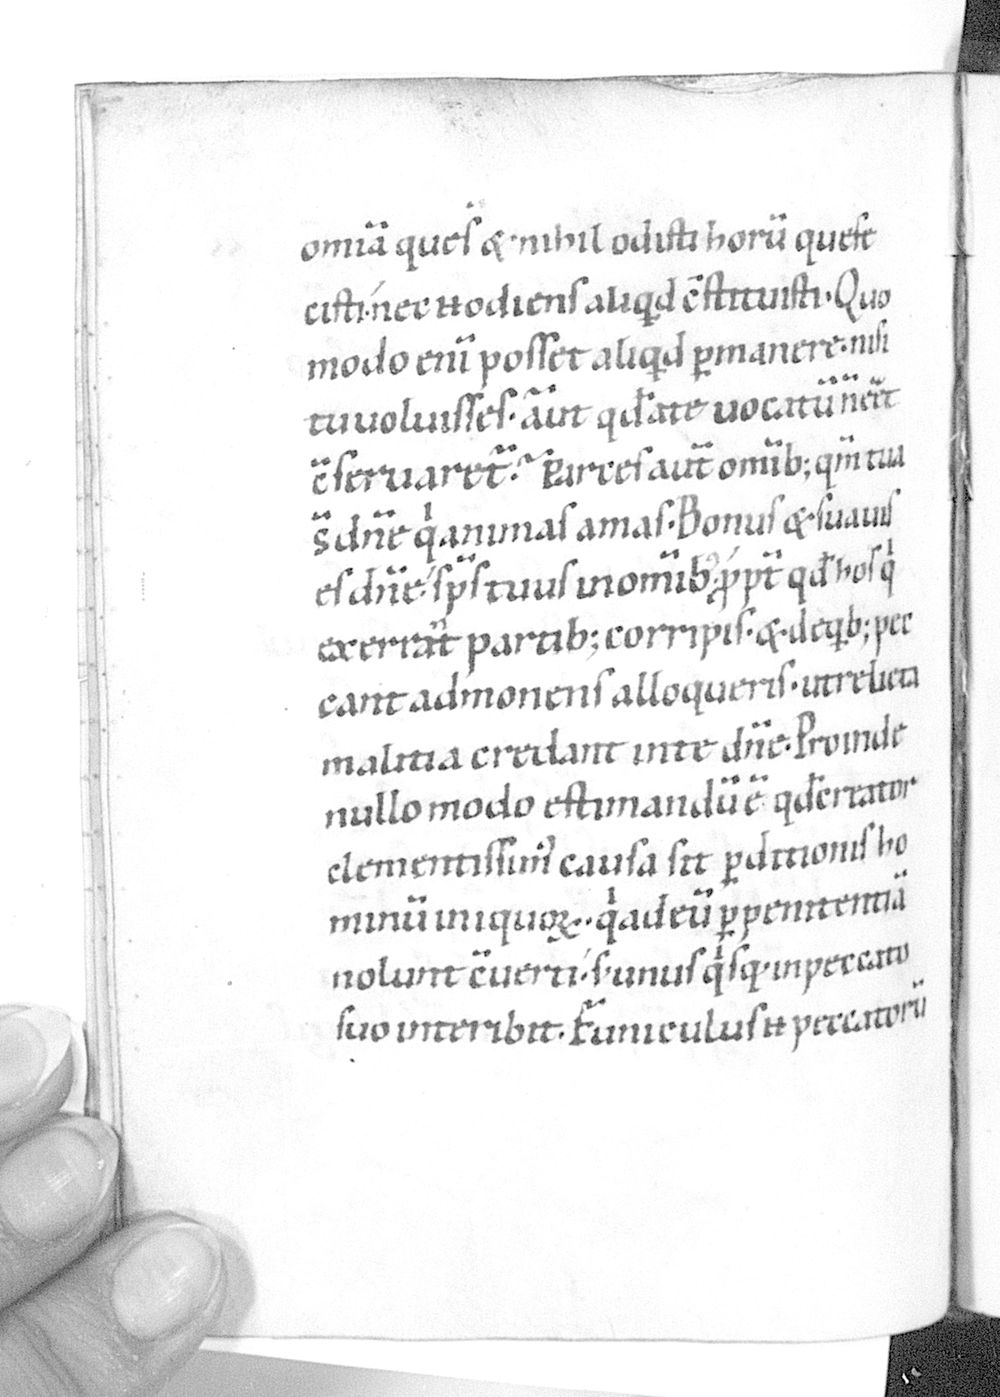 omīa que s̄ & nihil odisti horū que fe
cisti. nec n odiens aliqd c̄stituisti. Quo
modo enī posset aliqd ꝑmanere. nisi
tu voluisses. aūt qd a te uocatū n ēēt
c̄servaret̄. Parces aut̄ omīb; qm̄ tua
s̄ dn̄e qͥ animas amas. Bonus & suavis
es dn̄e sp̄s tuus in omīb; ꝓpt̄ qd hos qͥ
exerrāt partib; corripis. & de qb; pec
cant admonens alloqueris. ut relicta
malitia credant in te dn̄e. Proinde
nullo modo estimandū ē qd creator
clementissim᾽ causa sit ꝑditionis ho
minū iniquoꝝ. qͥ ad eū ꝑ penitentiā
nolunt c̄verti. s. unus qͥsq. in peccato
suo interibit. Funiculus n peccatorū